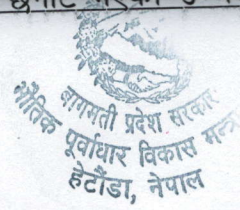 बागमती प्रदेश सरकार
भौतिक पूर्वाधार विकास मन्त्रा
हेटौंडा, नेपाल